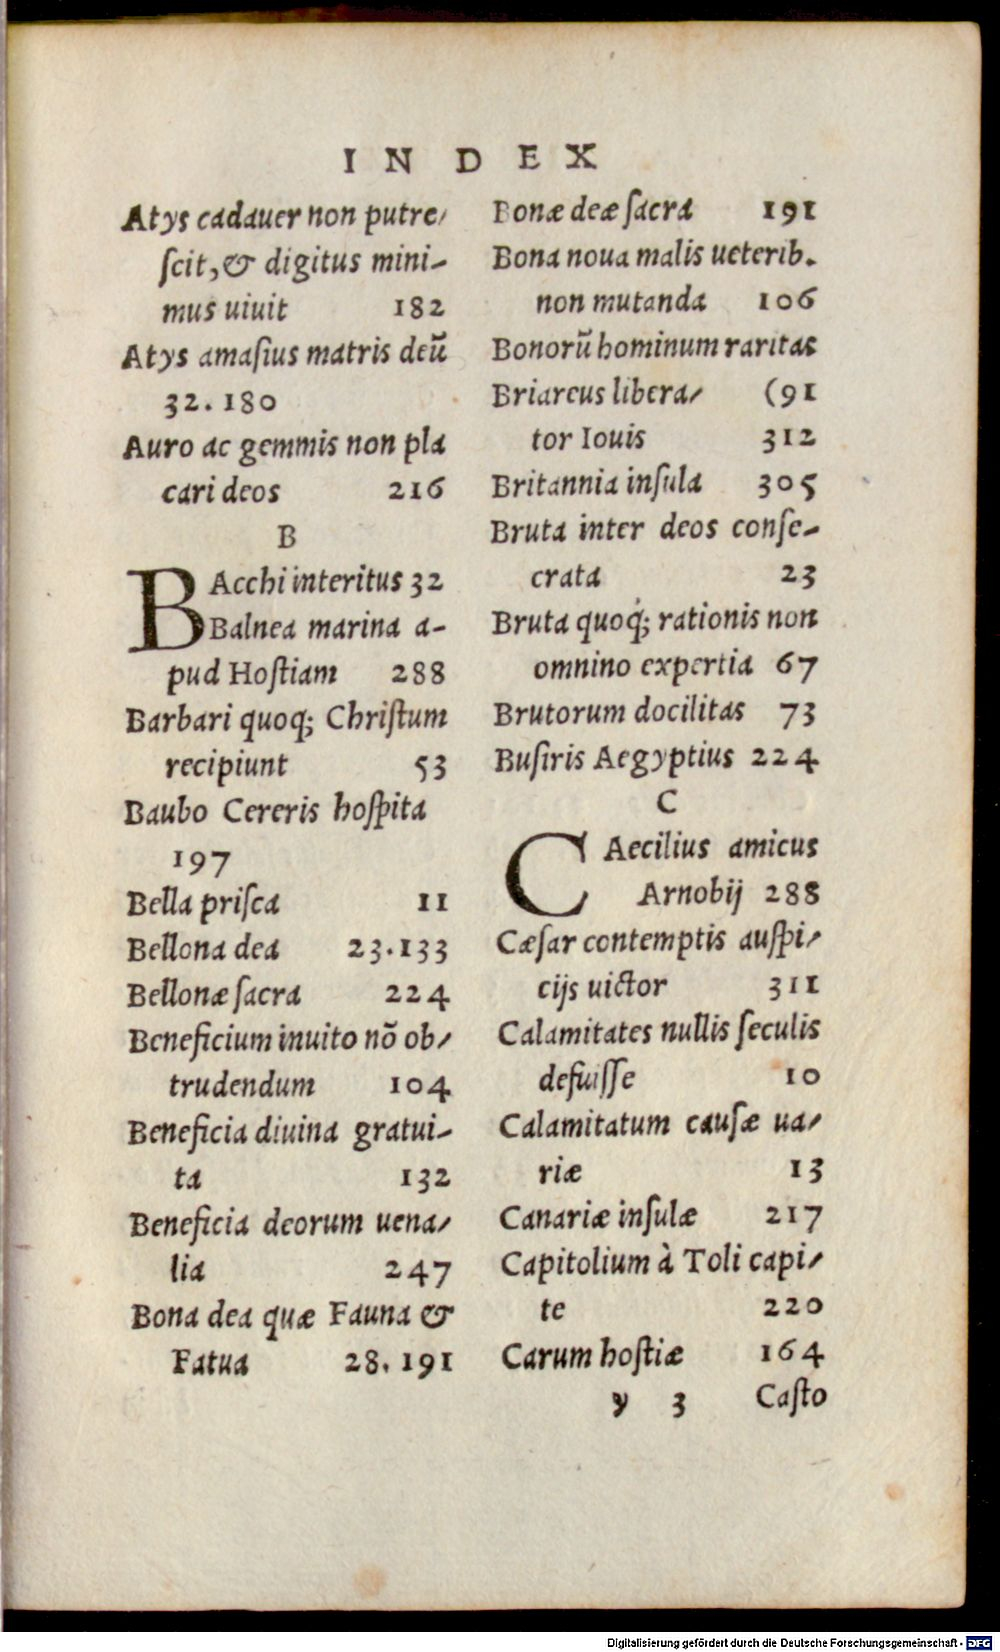 INDEX
Atys cadauer non putre/
ſcit, & digitus mini-
mus uiuit 182
Atys amaſius matris deū
32.180
Auro ac gemmis non pla
cari deos 216
B
BAcchi interitus 32
Balnea marina a-
pud Hoſtiam 288
Barbari quoq; Chriſtum
recipiunt 53
Baubo Cereris hoſpita
197
Bella priſca 11
Bellona dea 23.133
Bellonæ ſacra 224
Beneficium inuito nō ob/
trudendum 104
Beneficia diuina gratui-
ta 132
Beneficia deorum uena/
lia 247
Bona dea quæ Fauna &
Fatua 28.191
Bonæ deæ ſacra 191
Bona noua malis ueterib.
non mutanda 106
Bonorū hominum raritas
Briareus libera/ (91
tor Iouis 312
Britannia inſula 305
Bruta inter deos conſe-
crata 23
Bruta quoq́; rationis non
omnino expertia 67
Brutorum docilitas 73
Buſiris Aegyptius 224
C
CAecilius amicus
Arnobij 288
Cæſar contemptis auſpi/
cijs uictor 311
Calamitates nullis ſeculis
defuiſſe 10
Calamitatum cauſæ ua/
riæ 13
Canariæ inſulæ 217
Capitolium à Toli capi/
te 220
Carum hoſtiæ 164
y 3 Caſto
Digitalisierung gefördert durch die Deutsche Forschungsgemeinschaft - DFG